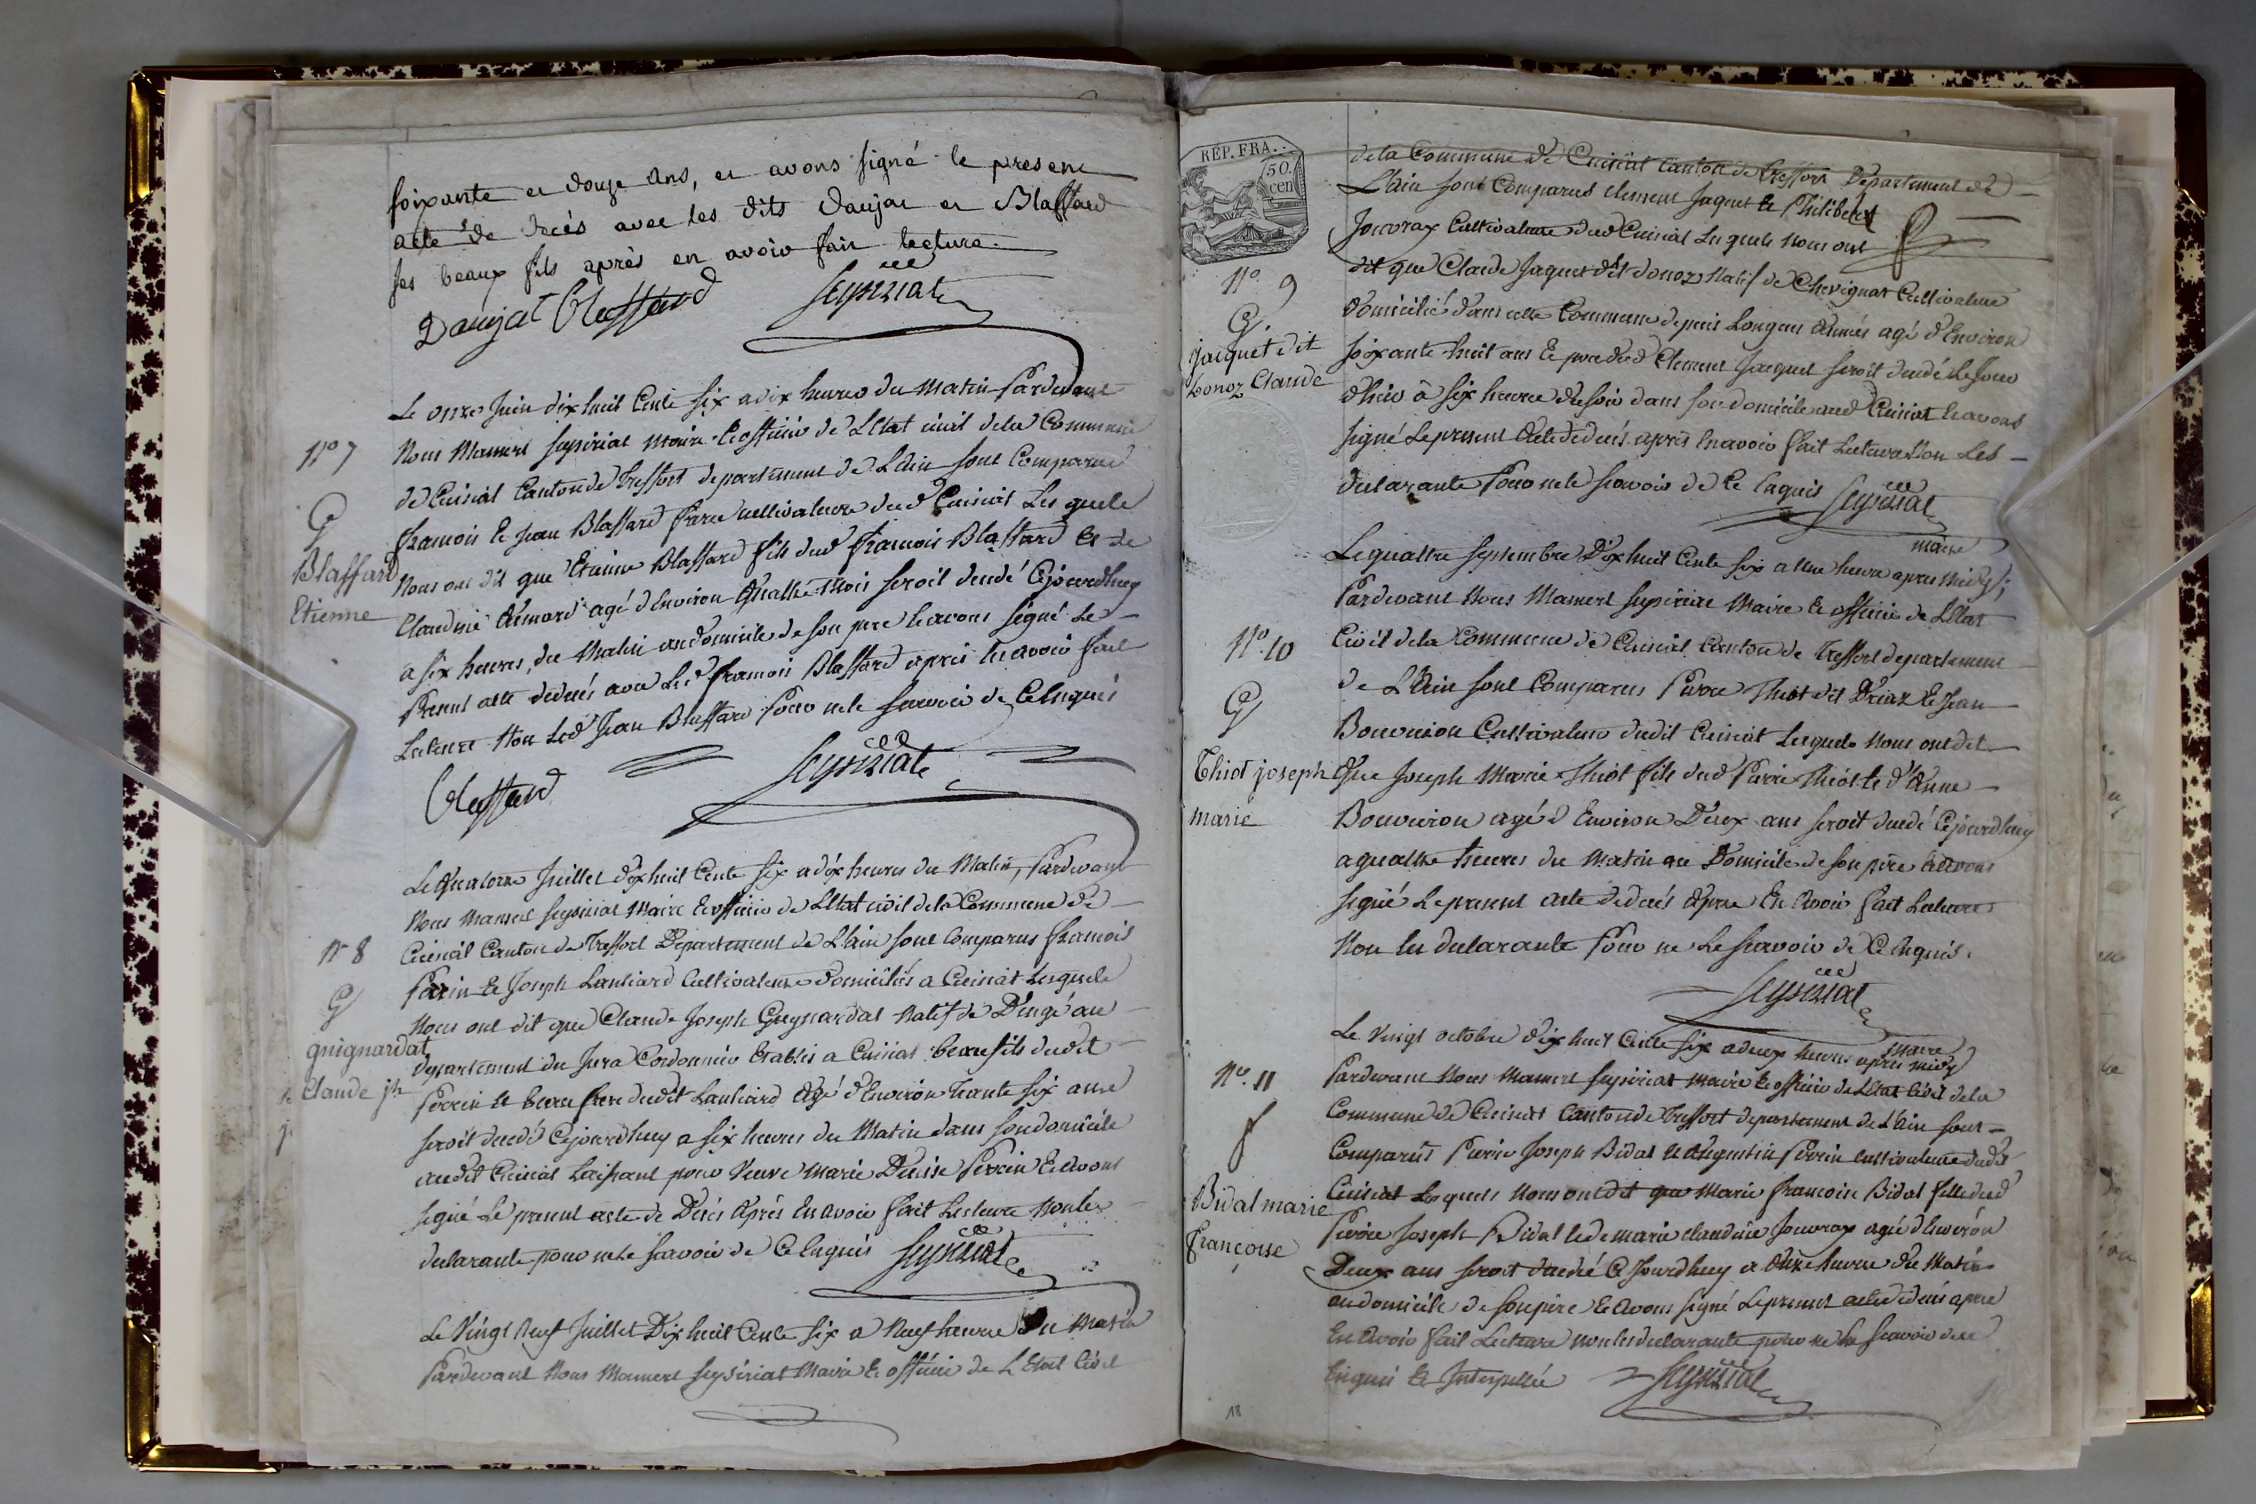 soixante et douze ans, et avons signé le present
acte de decès avec les dits Daujat et Blaffard
ses beaux fils après en avoir fait lecture.
Daujat Blaffard Seyssiriat
Le onze Juin dix huit Cents Six a dix heures du Matin Pardevant
N° 7
Nous Mamert Seyssiriat Maire & officier de L'Etat civil dela Commune
de Cuisiat Canton de Treffort departement de L'ain sont Comparus
G
francois & Jean Blaffard frere cultivateurs dud Cuisiat Les quels
Blaffard
Nous ont dit que Etienne Blaffard fils dud francois Blaffard & de
Etienne
Claudine agé d'Environ Quatre Mois seroit decedé Cejourdhuy
a six heures, du Matin au domicile de son pere & avons signé Le
Present acte dedecés avec Led francois Blaffard après En avoir fait
Lecture Non Led Jean Blaffard Pour ne le sçavoir de Ce Enquis
Blaffard Seyssiriat
Le Quatorze Juillet dix huit Cents Six a dix heures du Matin, Pardevant
Nous Mamert Seyssiriat Maire & officier de L'Etat civil dela Commune de
N° 8
Cuisiat Canton de Treffort Departement de L'ain sont Comparus francois
Perrin & Joseph Lauliard Cultivateurs domiciliés a Cuisiat Lesquels
G
Nous ont dit que Claude Joseph Guignardat Natif de Digné au
guignardat
departement du Jura Cordonnier Etablis a Cuisiat beaufils dudit
Claude jh
Perrin & beau frere dudit Lauliard Agé d'Environ Trente Six ans
seroit decedé Cejourdhuy a six heures du Matin dans son domicile
audit Cuisiat Laissant pour Veuve Marie Denise Perrin & avons
signé Le present acte de Décès Après En avoir fait Lecture Nonles
declarants pour ne le sçavoir de Ce Enquis Seyssiriat
Le Vingt Neuf Juillet Dix huit Cents Six a Neuf heures Du Matin
Pardevant Nous Mamert Seyssiriat Maire & officier de L'Etat Civil
REP. FRA.
50. cen
dela Commune de Cuisiat Canton de Treffort Departement de
L'ain sont Comparus Clement Jaquet & Philibert
Jouvray Cultivateurs dud Cuisiat Lesquels Nous ont
N° 9
dit que Claude Jaquet dit donoz Natif de Chevignat Cultivateur
G
domicilié dans cette Commune depuis Longues années agé d'Environ
jacquet dit
soixante huit ans & pere dud Clement Jacquet seroit decedé Le Jour
Donoz Claude
d'hier à six heures du soir dans son domicile aud Cuisiat & avons
signé Lepresent Acte dedecés après En avoir fait Lecture Non Les
declarants Pour ne le sçavoir de Ce Enquis Seyssiriat
maire
Lequatre Septembre Dix huit Cents Six a Une heure apres Midy;
Pardevant Nous Mamert Seyssiriat Maire & officier de L'Etat
N° 10
Civil dela Commune de Cuisiat Canton de Treffort departement
de L'Ain sont Comparus Pierre Thiot dit Driaz & Jean
G
Bouvuiron Cultivateurs dudit Cuisiat Lesquels Nous ont dit
Thiot joseph
Que Joseph Marie Thiot fils dud Pierre Thiot & d'Anne
marie
Bouvuiron agé d'Environ Deux ans seroit decedé Cejourdhuy
a quatre heures du Matin au Domicile de son père & avons
signé Lepresent acte dedecés Apres En avoir fait Lecture
Non les declarants Pour ne Le sçavoir de Ce Enquis.
Seyssiriat
maire
Le Vingt octobre Dix huit Cents Six a deux heures après midy
N° 11
Pardevant Nous Mamert Seyssiriat Maire & officier de L'Etat Civil dela
f
Commune de Cuisiat Canton de Treffort departement de L'Ain sont
Comparus Pierre Joseph Bidal & Augustin Perrin cultivateurs dudit
Bidal marie
Cuisiat Lesquels Nous ont dit que Marie francoise Bidal fille dud
françoise
Pierre Joseph Bidal & de Marie claudine Jouvray agée d'Environ
Deux ans seroit decedée Ce Jourdhuy a Onze heures du Matin
audomicile de sonpère & avons signé Lepresent acte dedecés apres
En avoir fait Lecture non les declarants pour ne Le sçavoir de ce
Enquis & Interpellés Seyssiriat
18